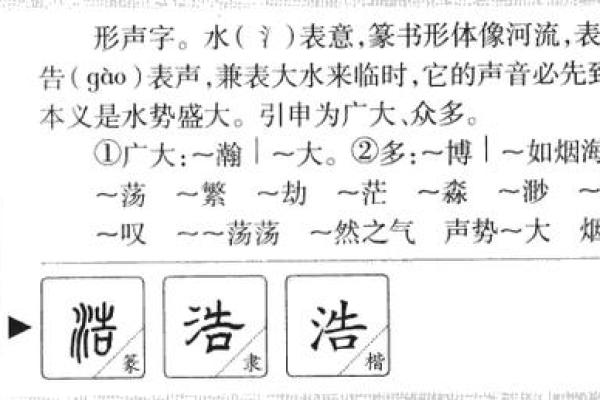 形声字。水(氵)表意,篆书形体像河流,表
告(gào)表声,兼表大水来临时,它的声音必先到
本义是水势盛大。引申为广大、众多。
①广大:～瀚｜～大。②多:～博｜～如烟海
～荡 ～繁 ～劫 ～茫 ～森 ～渺 ～
～叹 ～～荡荡 ～然之气 声势～大 烟
浩 篆 浩 隶 浩 楷